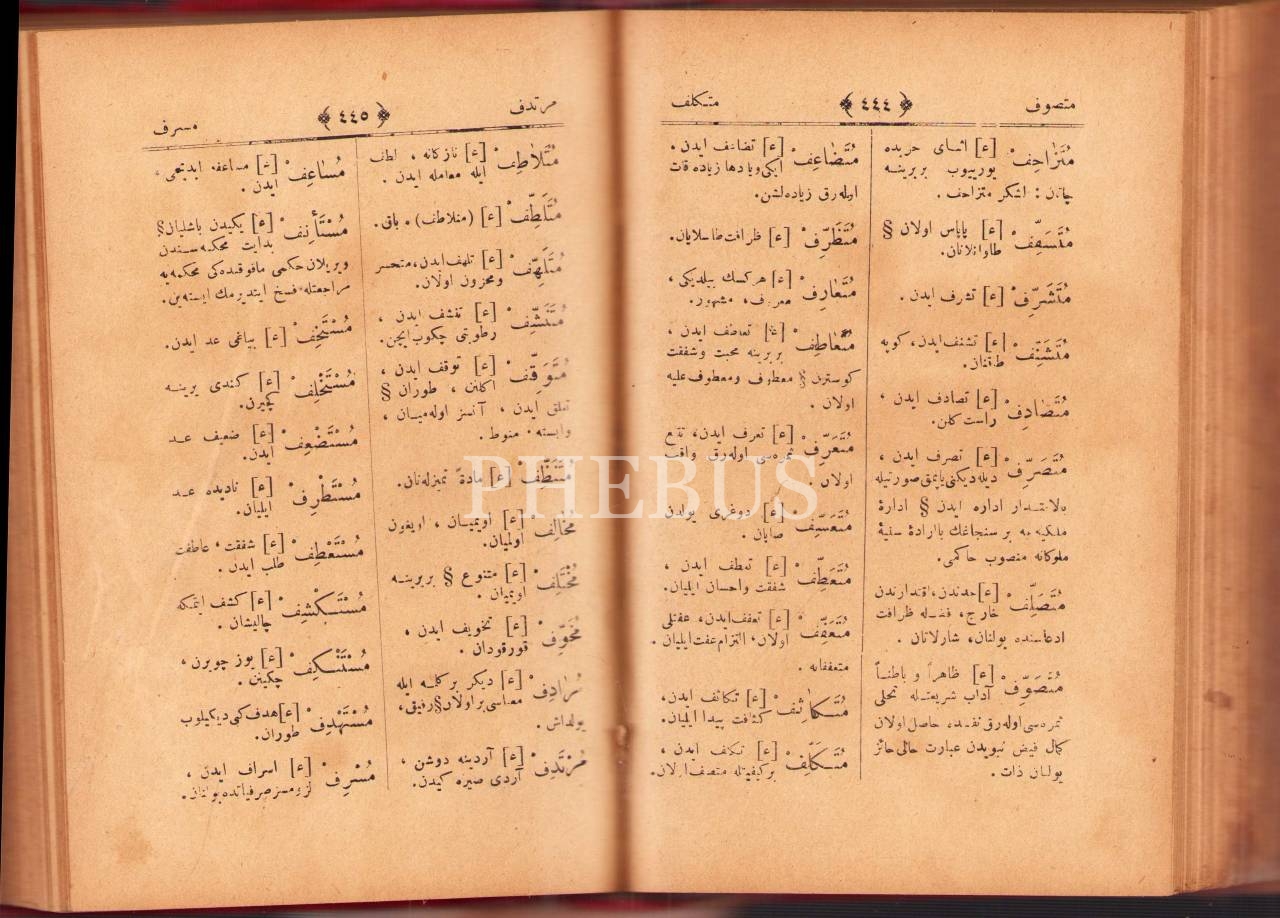 متصوف
٤٤٤
متكلف
مُتَزَاحِفْ [ع] اثنای حربده
یورییوب بربرینه
چاتان : لشكر متزاحف .
مُتَسَقِّفْ [ع] پاپاس اولان §
طاوانلانان.
مُتَشَرِّفْ [ع] تشرف ایدن .
مُتَشَنِّفْ [ع] تشنف ایدن، كوپه
طاقنان.
مُتَصَادِفْ [ع] تصادف ایدن ،
راست كلن.
مُتَصَرِّفْ [ع] تصرف ایدن ،
دیله دیكنی یاپمق صورتیله
بالاقتدار اداره ایدن § ادارهٔ
ملكیه ده بر سنجاغك با ارادهٔ سنیهٔ
ملوكانه منصوب حاكمی.
مُتَصَلِّفْ [ع] حدندن، اقتدارندن
خارج، فضله ظرافت
ادعاسنده بولنان، شارلاتان .
مُتَصَوِّفْ [ع] ظاهراً و باطناً
آداب شریعتله تحلی
ثمره سی اوله رق حاصل اولان
كمال فیض نبویدن عبارت حالی حائز
بولنان ذات .
مُتَضَاعِفْ [ع] تضاعف ایدن .
ایكی ویا دها زیاده قات
اوله رق زیاده لشن.
مُتَظَرِّفْ [ع] ظرافت طاسلایان.
مُتَعَارِفْ [ع] هركسك بیلدیكی ،
معروف، مشهور.
مُتَعَاطِفْ [ع] تعاطف ایدن ،
بربرینه محبت وشفقت
كوسترن § معطوف ومعطوف علیه
اولان .
مُتَعَرِّفْ [ع] تعرف ایدن، تتبع
ثمره سی اوله رق واقف
اولان .
مُتَعَسِّفْ [ع] دوغری یولدن
صاپان .
مُتَعَطِّفْ [ع] تعطف ایدن ،
شفقت واحسان ایلیان.
مُتَعَفِّفْ [ع] تعفف ایدن، عفتلی
اولان، التزام عفت ایلیان .
متعففانه .
مُتَكَاثِفْ [ع] تكاثف ایدن،
كثافت پیدا ایلیان.
مُتَكَلِّفْ [ع] تكلف ایدن ،
بركیفیتله متصف اولان.
مرتدف
٤٤٥
مسرف
مُتَلَاطِفْ [ع] نازكانه ، لطف
ایله معامله ایدن .
مُتَلَطِّفْ [ع] (متلاطف) . باق.
مُتَلَهِّفْ [ع] تلهف ایدن، متحسر
ومحزون اولان.
مُتَنَشِّفْ [ع] تنشف ایدن ،
رطوبتی چكوب ایچن.
مُتَوَقِّفْ [ع] توقف ایدن ،
اكلنن ، طوران §
تعلق ایدن ، آنسز اوله میان ،
وابسته، منوط .
مُتَنَظِّفْ [ع] مادةً تمیزله نان.
مُخَالِفْ [ع] اویمیان ، اویغون
اولمیان.
مُخْتَلِفْ [ع] متنوع § بربرینه
اویمیان .
مُخَوِّفْ [ع] تخویف ایدن ،
قورقودان .
مُرَادِفْ [ع] دیكر بر كلمه ایله
معناسی بر اولان § رفیق،
یولداش .
مُرْتَدِفْ [ع] آردینه دوشن ،
آردی صیره كیدن.
مُسَاعِفْ [ع] مساعفه ایدیجی ،
ایدن .
مُسْتَأْنِفْ [ع] یكیدن باشلیان §
بدایت محكمه سندن
ویریلان حكمی مافوقنده كی محكمه یه
مراجعتله فسخ ایتدیرمك ایسته ین.
مُسْتَخِفْ [ع] بیاغی عد ایدن.
مُسْتَخْلِفْ [ع] كندی یرینه
كچیرن.
مُسْتَضْعِفْ [ع] ضعیف عد
ایدن.
مُسْتَطْرِفْ [ع] نادیده عد
ایلیان.
مُسْتَعْطِفْ [ع] شفقت، عاطفت
طلب ایدن .
مُسْتَكْشِفْ [ع] كشف ایتمكه
چالیشان .
مُسْتَنْكِفْ [ع] یوز چویرن ،
چكینن .
مُسْتَهْدِفْ [ع] هدف كی دیكیلوب
طوران.
مُسْرِفْ [ع] اسراف ایدن ،
لزومسز صرفیاتده بولنان.
PHEBUS